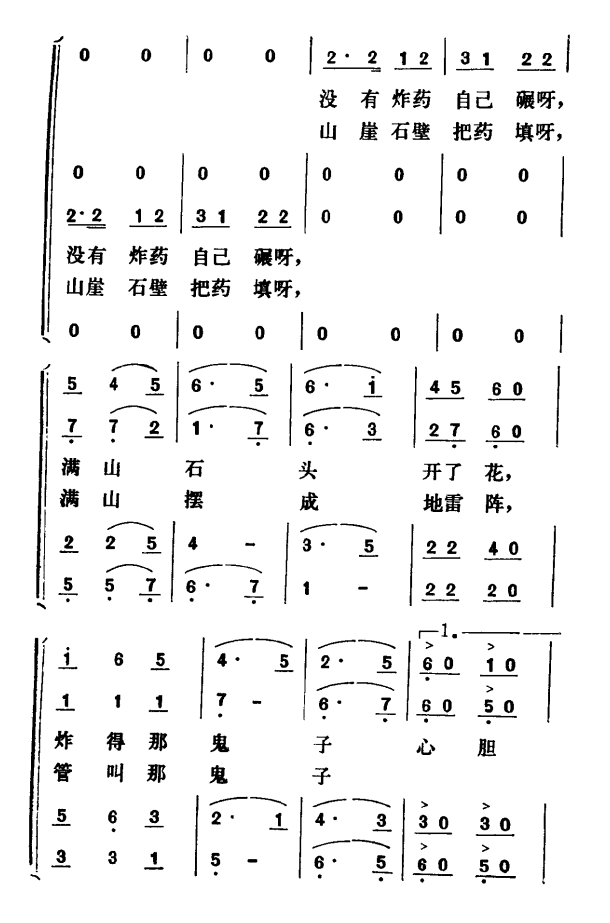 0 0 | 0 0 | 2· 2 12 | 31 22 |
没有炸药自己碾呀,
山崖石壁把药填呀,
0 0 | 0 0 | 0 0 | 0 0 |
2·2 12 | 31 22 | 0 0 | 0 0 |
没有炸药自己碾呀,
山崖石壁把药填呀,
0 0 | 0 0 | 0 0 | 0 0
5 4 5 | 6· 5 | 6· i | 45 60
7 7 2 | 1· 7 | 6· 3 | 27 60
满山石头开了花,
满山摆成地雷阵,
2 2 5 | 4 - | 3· 5 | 22 40
5 5 7 | 6· 7 | 1 - | 22 20
1.
i 6 5 | 4· 5 | 2· 5 | 60 10
1 1 1 | 7 - | 6· 7 | 60 50
炸得那鬼子心胆
管叫那鬼子
5 6 3 | 2· 1 | 4· 3 | 30 30
3 3 1 | 5 - | 6· 5 | 60 50